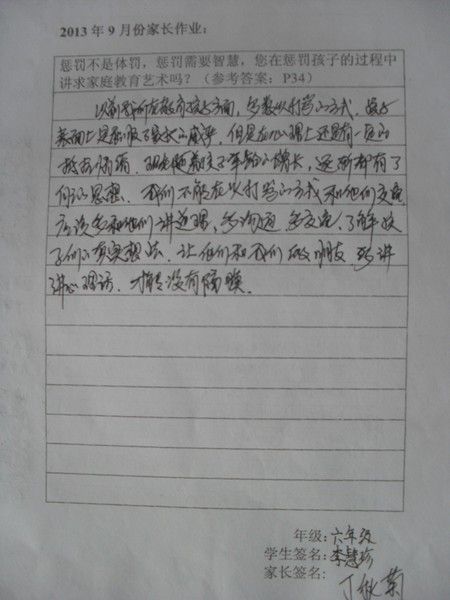 2013年9月份家长作业：
惩罚不是体罚，惩罚需要智慧，您在惩罚孩子的过程中
讲求家庭教育艺术吗？（参考答案：P34）
以前我们在教育孩子方面，多数以打骂的方式，孩子
表面上是服了家长的，但是在心理上还是有一定的
情绪，现在随着孩子年龄的增长，逐渐都有了
们的思想，我们不能在以打骂的方式和他们交流
应该多和他们讲道理，多沟通，多交流，了解孩
子们的真实想法，让他们和我们做朋友，多讲
讲心理话，才没有隔膜。
年级：六年级
学生签名：李慧珍
家长签名：丁秋菊